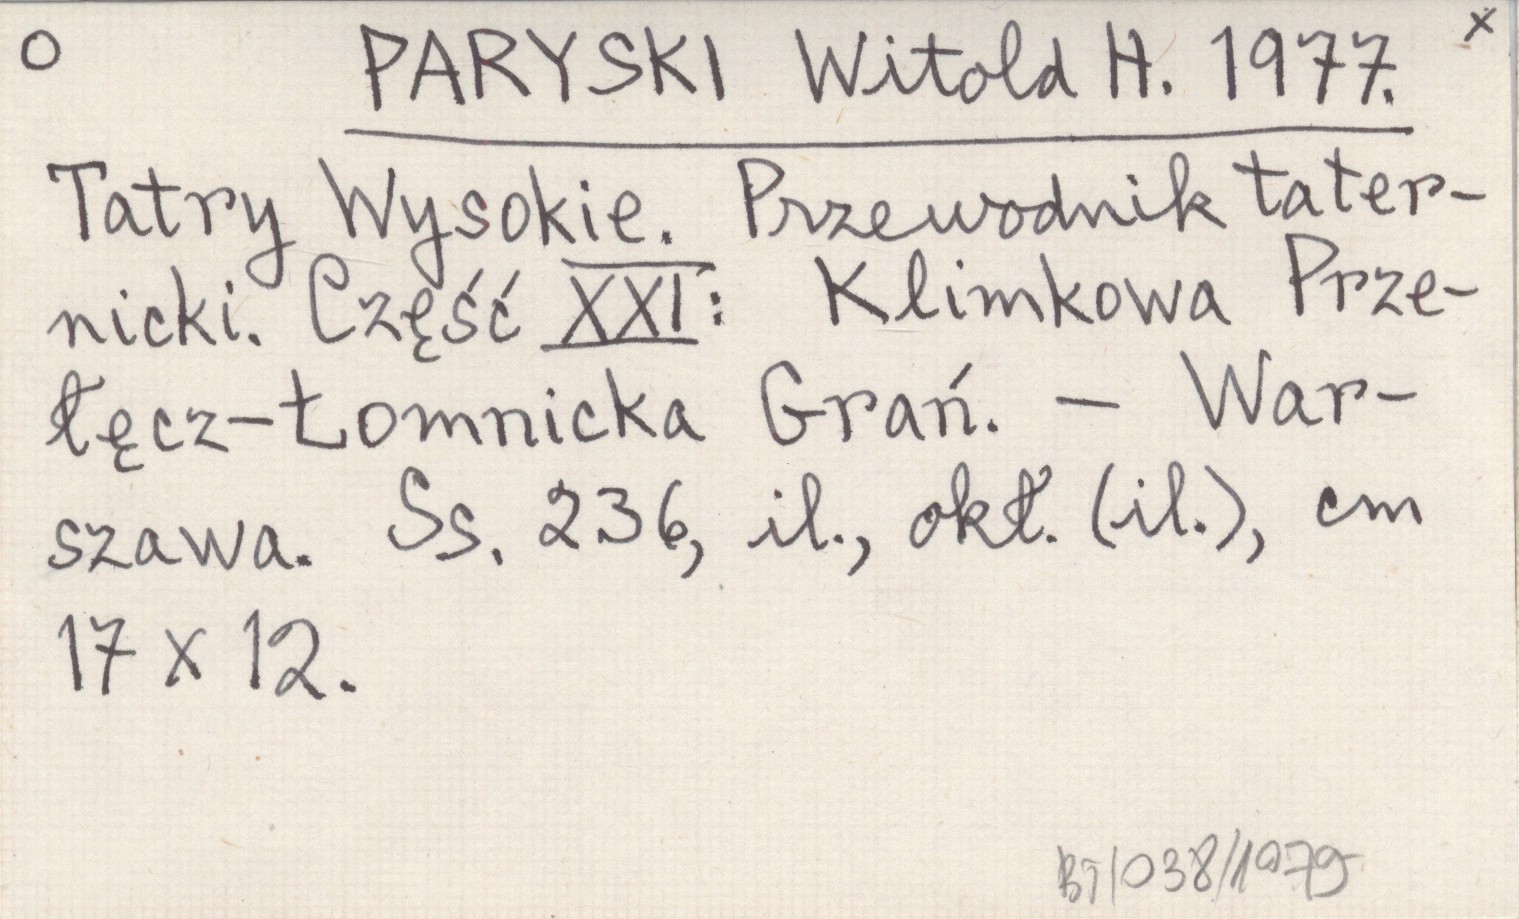 O PARYSKI Witold H. 1977. x
Tatry Wysokie. Przewodnik tater-
nicki. Część XXI: Klimkowa Prze-
łęcz-Łomnicka Grań. — War-
szawa. Ss. 236, il., okł. (il.), cm
17 x 12.
BT/038/1979